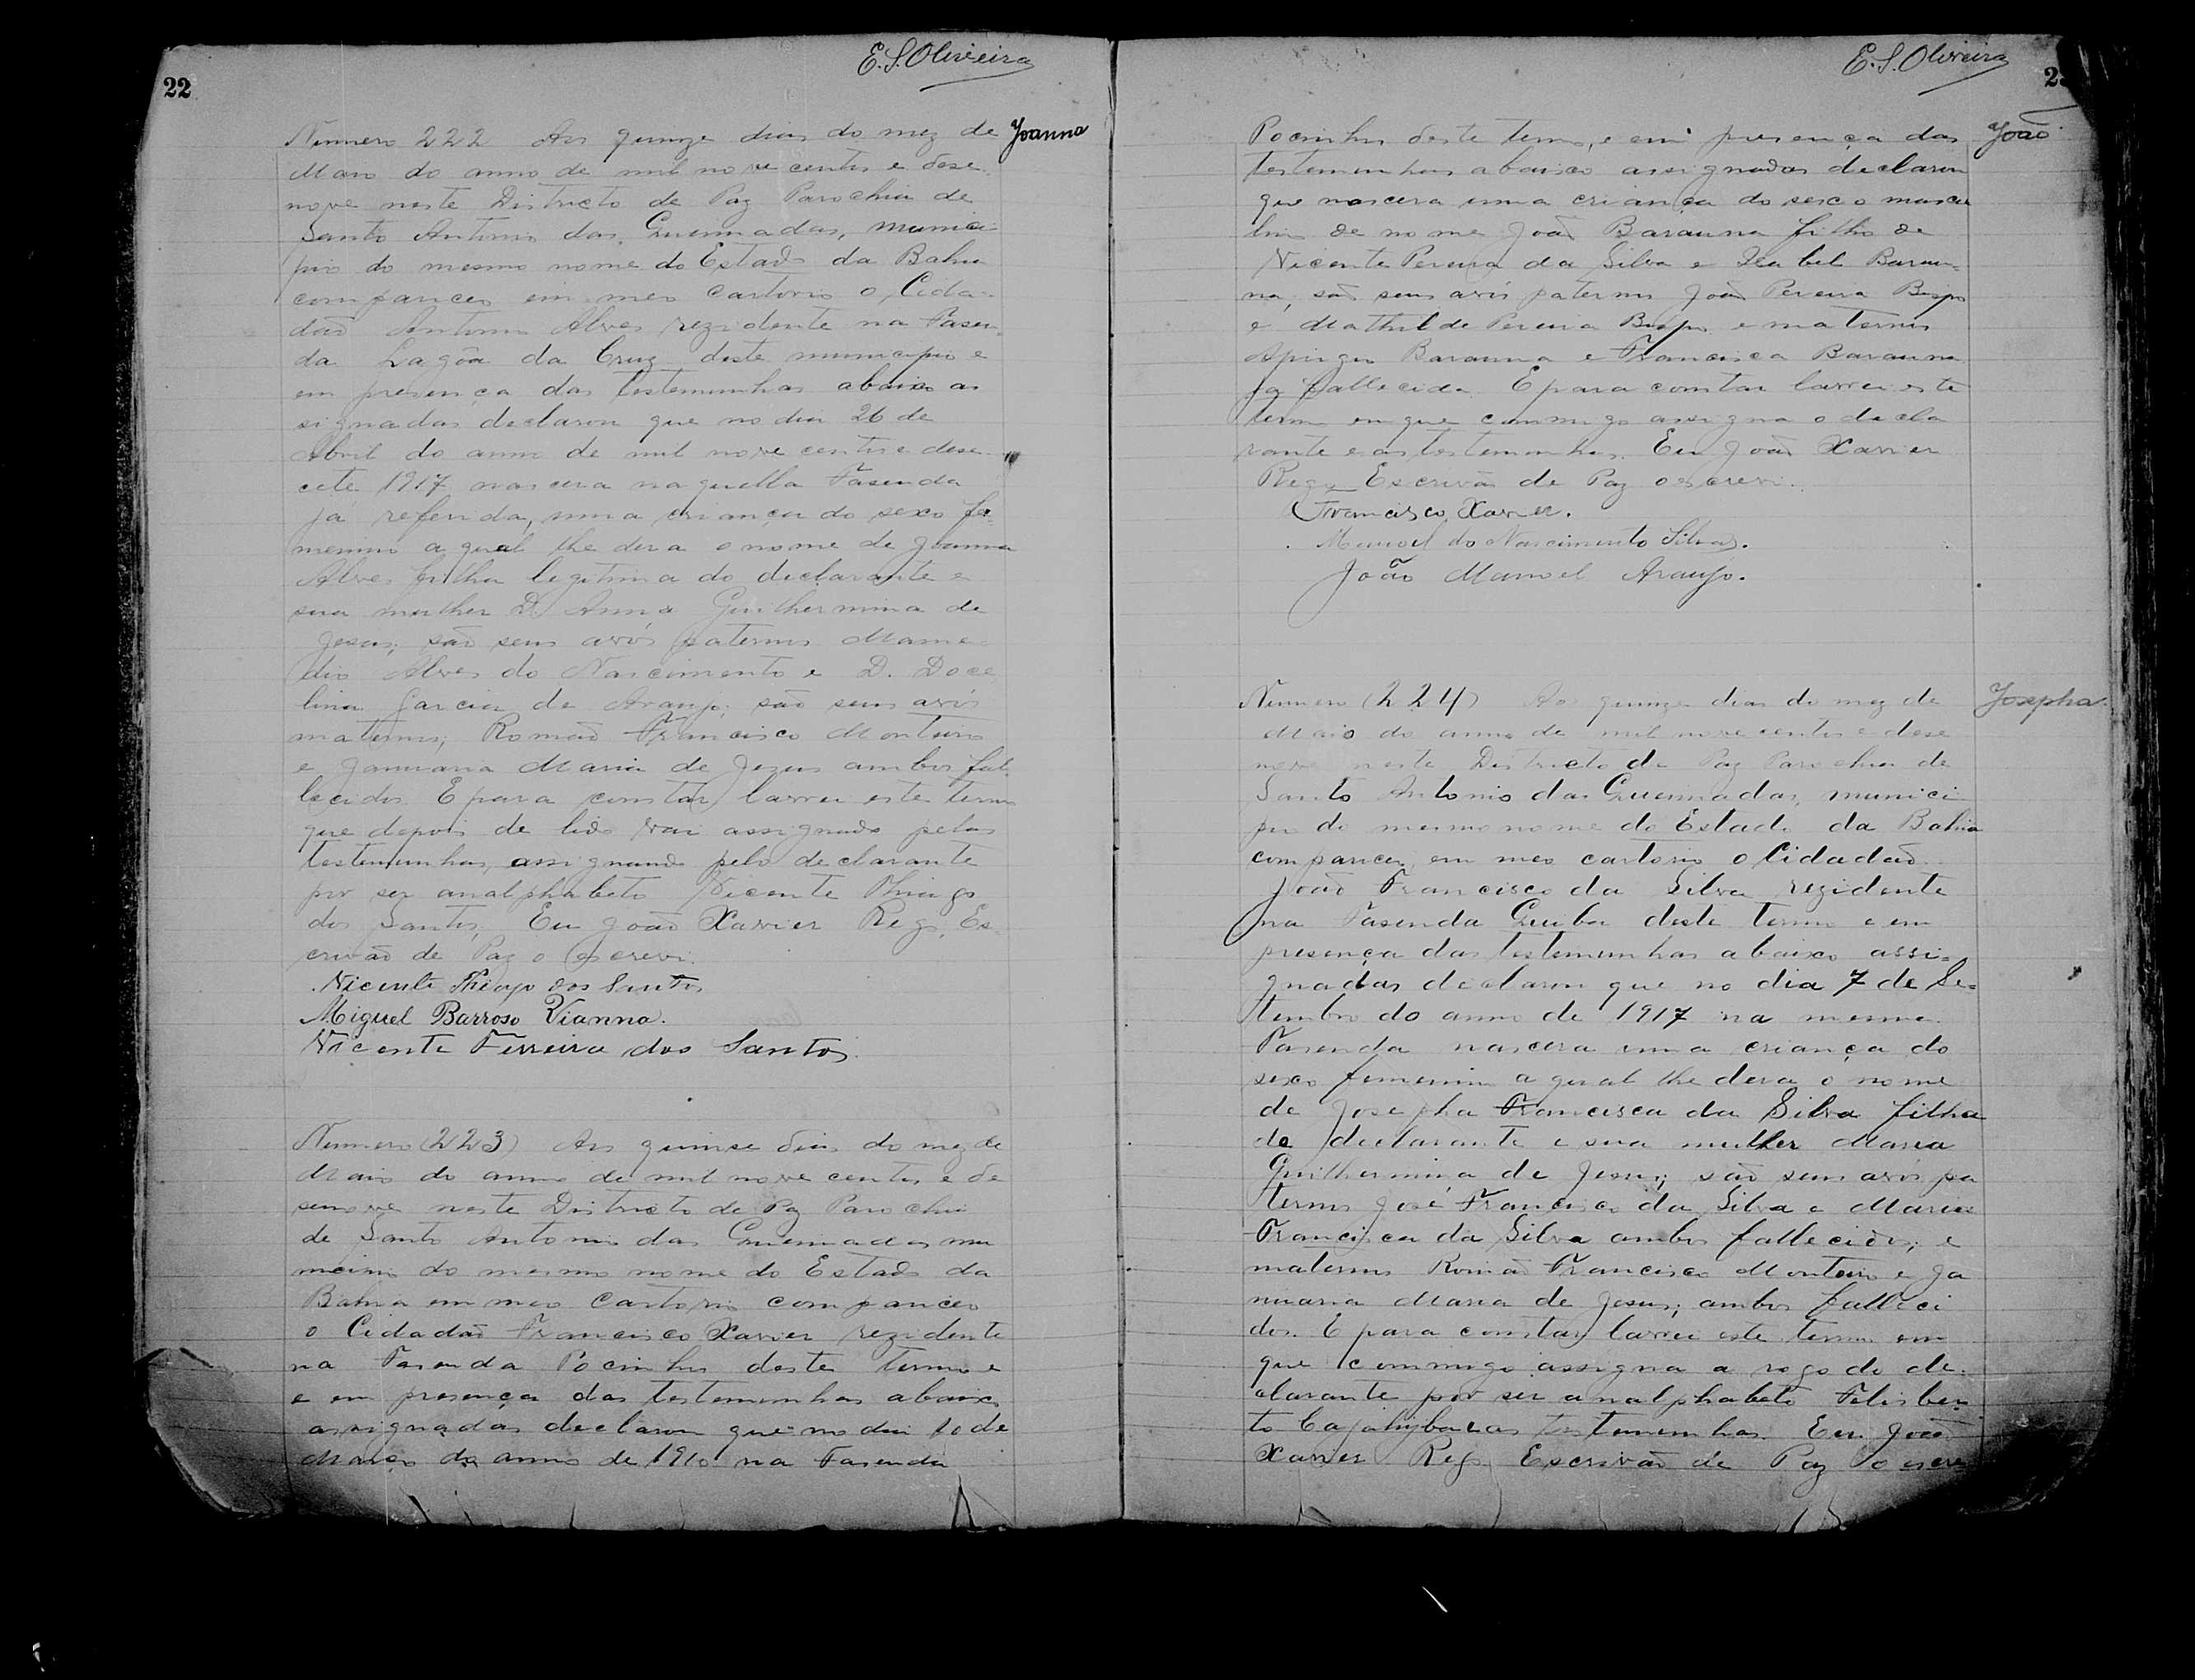 22
E.S. Oliveira
Numero 222 Aos quinze dias do mez de Joanna
Maio do anno de mil nove centos e dese
nove neste Districto de Paz Parochia de
Santo Antonio das Queimadas, munici
pio do mesmo nome do Estado da Bahia
compareceo em meo Cartorio o Cida-
dão Antonio Alves rezidente na Fasen-
da Lagôa da Cruz deste municipio e
em presença das testemunhas abaixo as
signadas declarou que no dia 26 de
Abril do anno de mil nove centos e dese-
cete 1917 nascera naquella Fasenda
já referida, uma criança do sexo fe-
menino a qual lhe dera o nome de Joanna
Alves filha legitima do declarante e
sua mulher D. Anna Guilhermina de
Jesus; são seus avós paternos Mame-
dio Alves do Nascimento e D. Doce
lina Garcia de Araujo; são seus avós
maternos; Romão Francisco Monteiro
e Januaria Maria de Jezus ambos fal-
lecidos. E para constar lavrei este termo
que depois de lido vai assignado pelas
testemunhas, assignando pelo declarante
por ser analphabeto Vicente Thiago
dos Santos, Eu João Xavier Rego, Es-
crivão de Paz o escrevi.
Vicente Thiago dos Santos
Miguel Barroso Vianna.
Vicente Ferreira dos Santos.
Numero (223) Aos quinse dias do mez de
Maio do anno de mil nove centos e de
senove neste Districto de Paz Parochia
de Santo Antonio das Queimadas mu
nicipio do mesmo nome do Estado da
Bahia em meo Cartorio compareceo
o Cidadão Francisco Xavier rezidente
na Fasenda Pocinhos deste termo e
e em presença das testemunhas abaixo
assignadas declarou que no dia 10 de
Março do anno de 1910 na Fasenda
E.S. Oliveira
Pocinhos deste termo, e em presença das João
testemunhas abaixo assignadas declarou
que nascera uma criança do sexo mascu
lino de nome João Barauna filho de
Vicente Pereira da Silva e Izabel Barau-
na, são seus avós paternos João Pereira Bispo
e Mathilde Pereira Bispo e maternos
Barauna e Francisca Barauna
já fallecida. E para constar lavrei este
termo em que commigo assigna o decla
rante e as testemunhas. Eu João Xavier
Rego Escrivão de Paz o escrevi.
Francisco Xavier.
Manoel do Nascimento Silva.
João Manoel Araujo.
Numero (224) Aos quinze dias do mez de Josepha
Maio do anno de mil nove centos e dese
nove neste Districto de Paz Parochia de
Santo Antonio das Queimadas, munici
pio do mesmo nome do Estado da Bahia
compareceu em meo cartorio o Cidadão
João Francisco da Silva rezidente
na Fasenda deste termo e em
presença das testemunhas abaixo assi-
gnadas declarou que no dia 7 de Se-
tembro do anno de 1917 na mesma
Fasenda nascera uma criança do
sexo femenino a qual lhe dera o nome
de Josepha Francisca da Silva filha
do declarante e sua mulher Maria
Guilhermina de Jesus; são seus avós pa
ternos José Francisco da Silva e Maria
Francisca da Silva ambos fallecidos; e
maternos Romão Francisco Monteiro e Ja
nuaria Maria de Jesus; ambos falleci
dos. E para constar lavrei este termo em
que commigo assigna a rogo do de-
clarante por ser analphabeto Felisber-
to testemunhas. Eu João
Xavier Rego Escrivão de Paz o escre